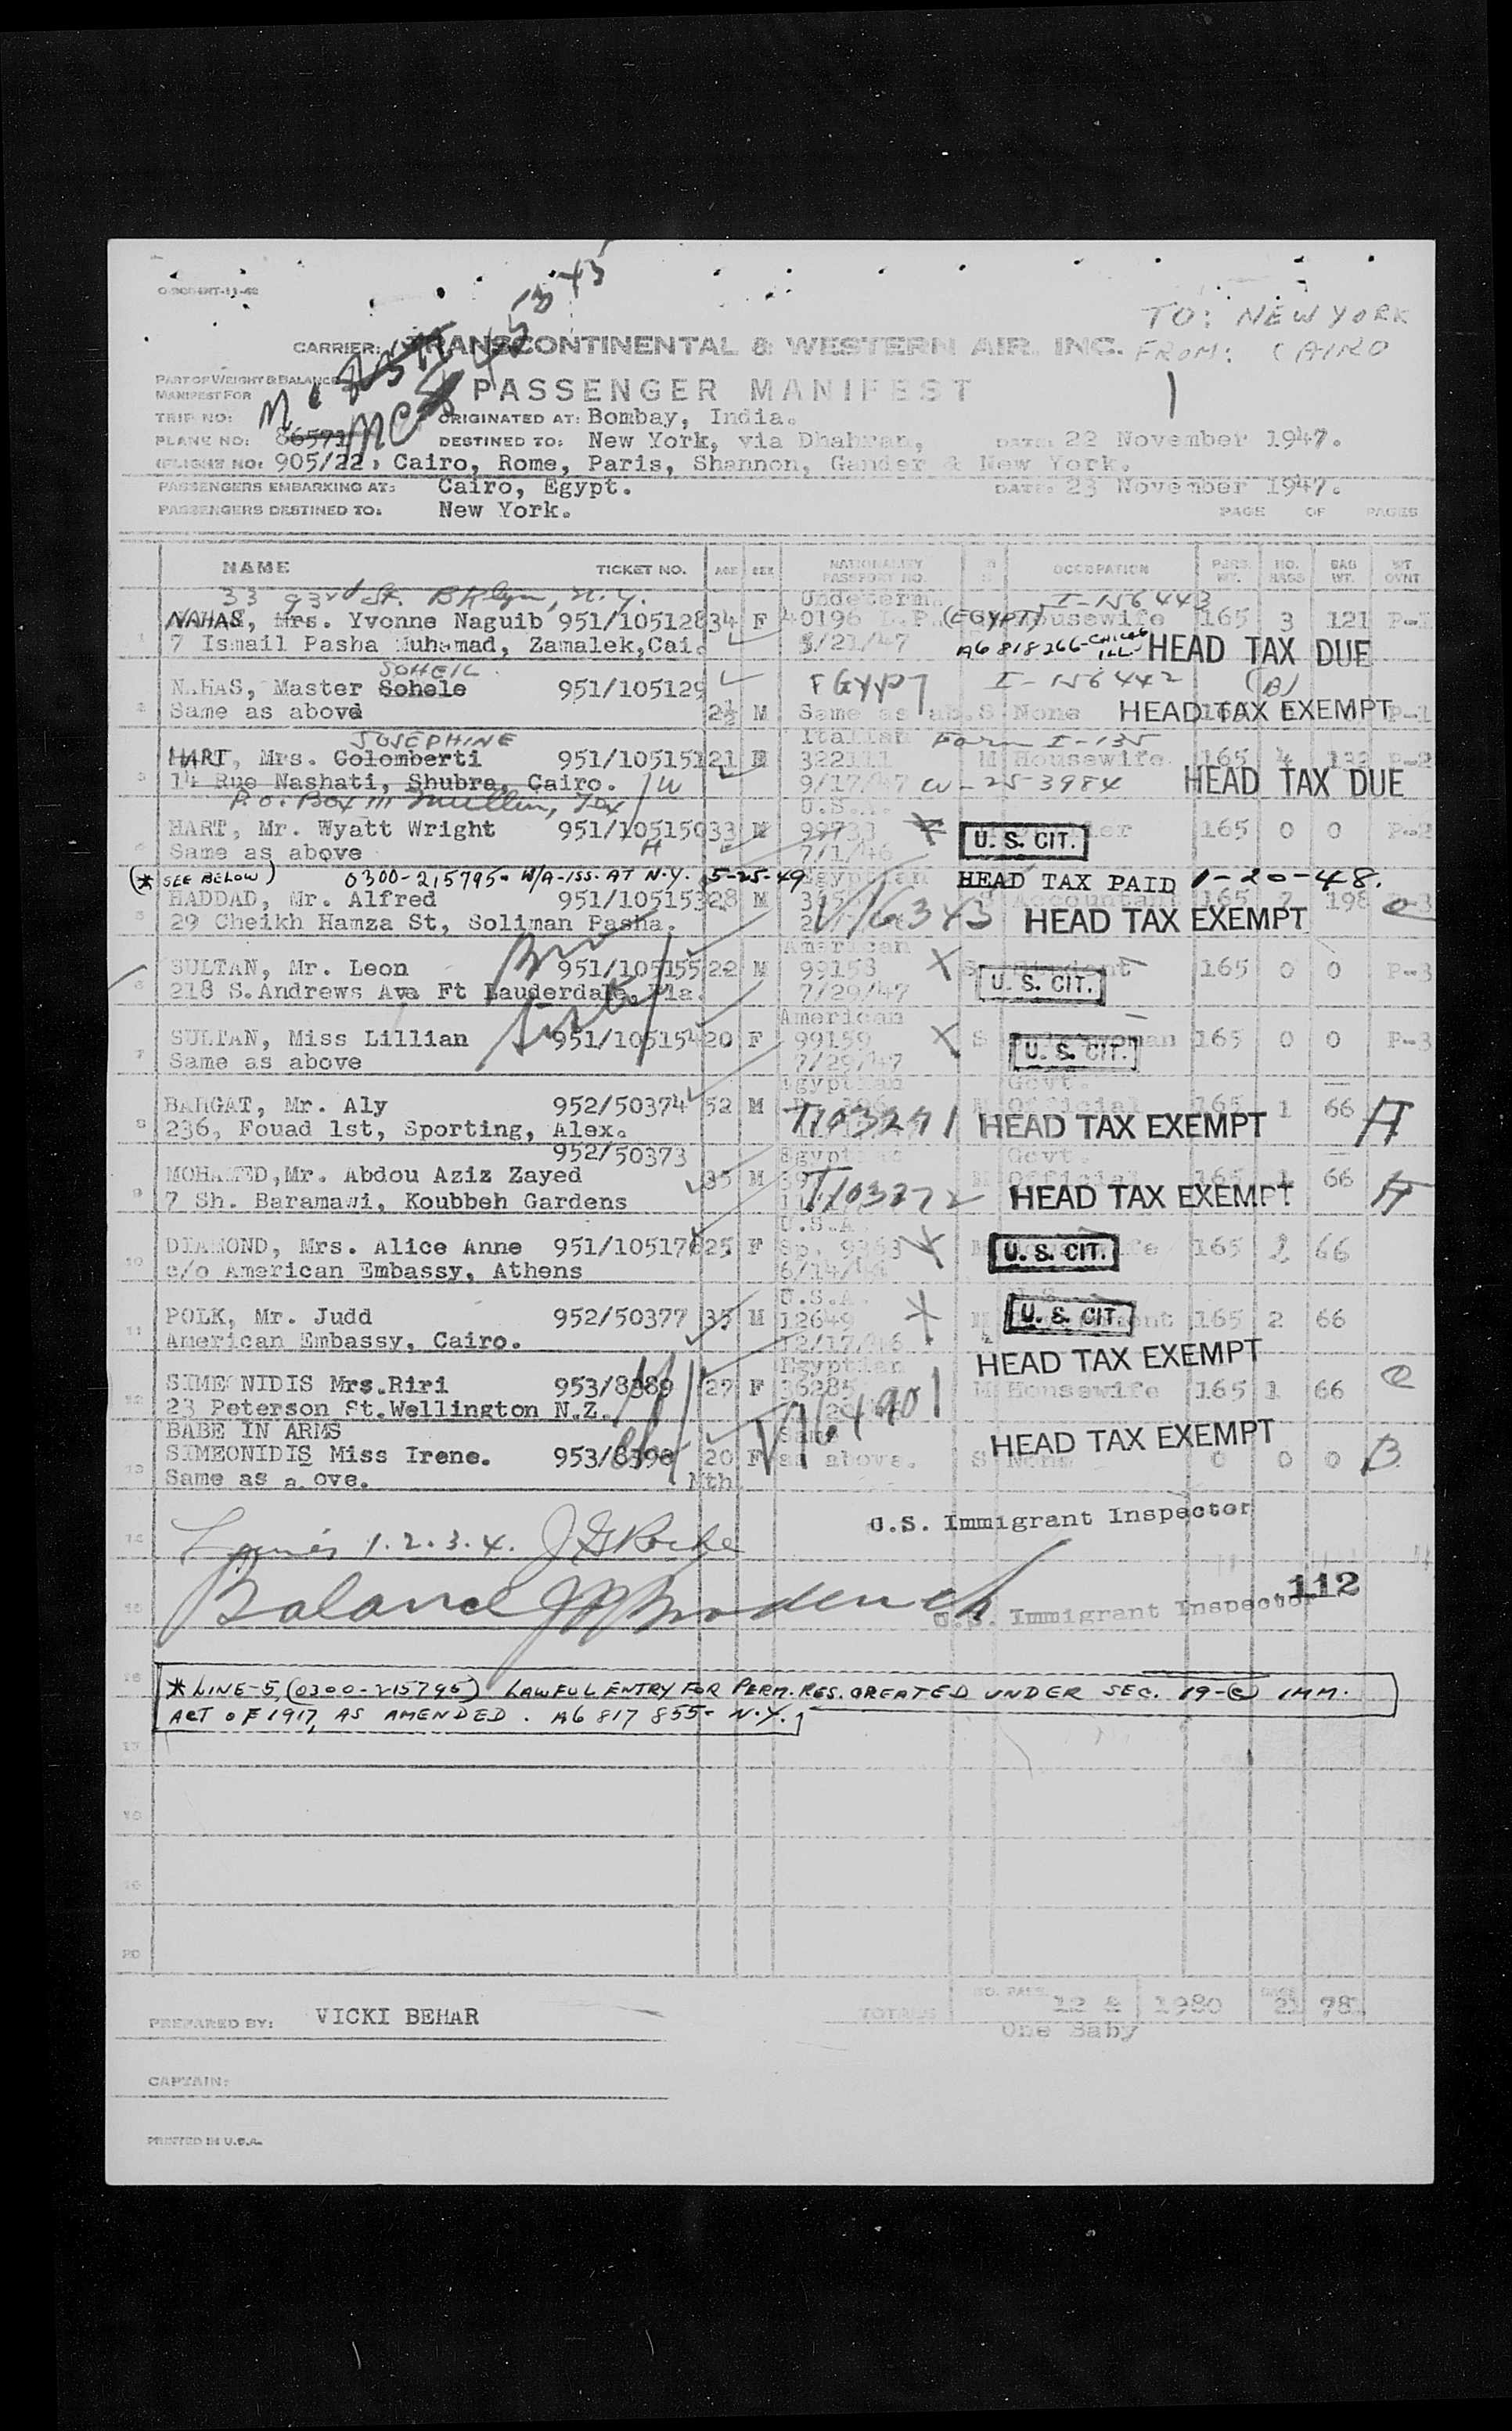 TO: NEW YORK
CARRIER: TRANSCONTINENTAL & WESTERN AIR, INC. FROM: CAIRO
PART OF WEIGHT & BALANCE
MANIFEST FOR
PASSENGER MANIFEST
TRIP NO: ORIGINATED AT: Bombay, India.
PLANE NO: DESTINED TO: New York, via Dhahran, DATE: 22 November 1947.
FLIGHT NO: 905/22, Cairo, Rome, Paris, Shannon, Gander & New York.
PASSENGERS EMBARKING AT: Cairo, Egypt. DATE: 23 November 1947.
PASSENGERS DESTINED TO: New York. PAGE OF PAGES
NAME TICKET NO. AGE SEX NATIONALITY PASSPORT NO. OCCUPATION PERS. WT. NO. BAGS BAG WT. WT OVNT
33 93rd St. Bklyn, N.Y. I-156443
NAHAS, Mrs. Yvonne Naguib 951/105128 34 F 40196 (EGYPT) Housewife 165 3 121
7 Ismail Pasha Muhamad, Zamalek, Cai. /21/47 A6 818266 - CHICAG ILL HEAD TAX DUE
SOHEIL
NAHAS, Master Sohele 951/105129 EGYPT I-156442 (B)
Same as above 2½ M Same as ab. S None HEAD TAX EXEMPT P-1
JOSEPHINE Italian Form I-135
HART, Mrs. Colomberti 951/105151 21 322111 M Housewife 165 4 132 P-2
14 Rue Nashati, Shubra, Cairo. 9/17/47 W-253984 HEAD TAX DUE
P.O. Box 111 Mullin, Tex U.S.A.
HART, Mr. Wyatt Wright 951/105150 33 M 99733 U. S. CIT. 165 0 0 P-2
Same as above 7/1/46
(* SEE BELOW) 0300-215795 - W/A-ISS. AT N.Y. 5-25-49 Egyptian HEAD TAX PAID 1-20-48.
HADDAD, Mr. Alfred 951/105153 28 M V163 Accountant 165 198
29 Cheikh Hamza St, Soliman Pasha. HEAD TAX EXEMPT
American
SULTAN, Mr. Leon 951/105155 22 M 99158 X S U. S. CIT. 165 0 0 P-3
218 S. Andrews Ave Ft Lauderdale, Fla. 7/29/47
American
SULTAN, Miss Lillian 951/105154 20 F 99159 X S U. S. CIT. 165 0 0 P-3
Same as above 7/29/47
Egyptian Govt.
BAHGAT, Mr. Aly 952/50374 52 M M Official 165 1 66
236, Fouad 1st, Sporting, Alex. HEAD TAX EXEMPT
952/50373 Egyptian Govt.
MOHAMED, Mr. Abdou Aziz Zayed 35 M M Official 165 1 66
7 Sh. Baramawi, Koubbeh Gardens HEAD TAX EXEMPT
U.S.A.
DIAMOND, Mrs. Alice Anne 951/105176 25 F Sp. 9363 X U. S. CIT. 165 2 66
c/o American Embassy, Athens
U.S.A.
POLK, Mr. Judd 952/50377 35 M 12649 X U. S. CIT. 165 2 66
American Embassy, Cairo. 12/17/46
Egyptian HEAD TAX EXEMPT
SIMEONIDIS Mrs. Riri 953/8389 27 F 36285 M Housewife 165 1 66
23 Peterson St. Wellington N.Z.
BABE IN ARMS Same HEAD TAX EXEMPT
SIMEONIDIS Miss Irene. 953/8390 20 F as above. S None 0 0 0 B
Same as above. Mth
U.S. Immigrant Inspector
1. 2. 3. 4.
Balance
U.S. Immigrant Inspector 112
* LINE-5, (0300-215795) LAWFUL ENTRY FOR PERM. RES. CREATED UNDER SEC. 19-(c) IMM.
ACT OF 1917, AS AMENDED. A6 817 855 - N.Y.
NO. PASS.
TOTALS 12 & 1980 21 98
PREPARED BY: VICKI BEHAR One Baby
CAPTAIN:
PRINTED IN U.S.A.